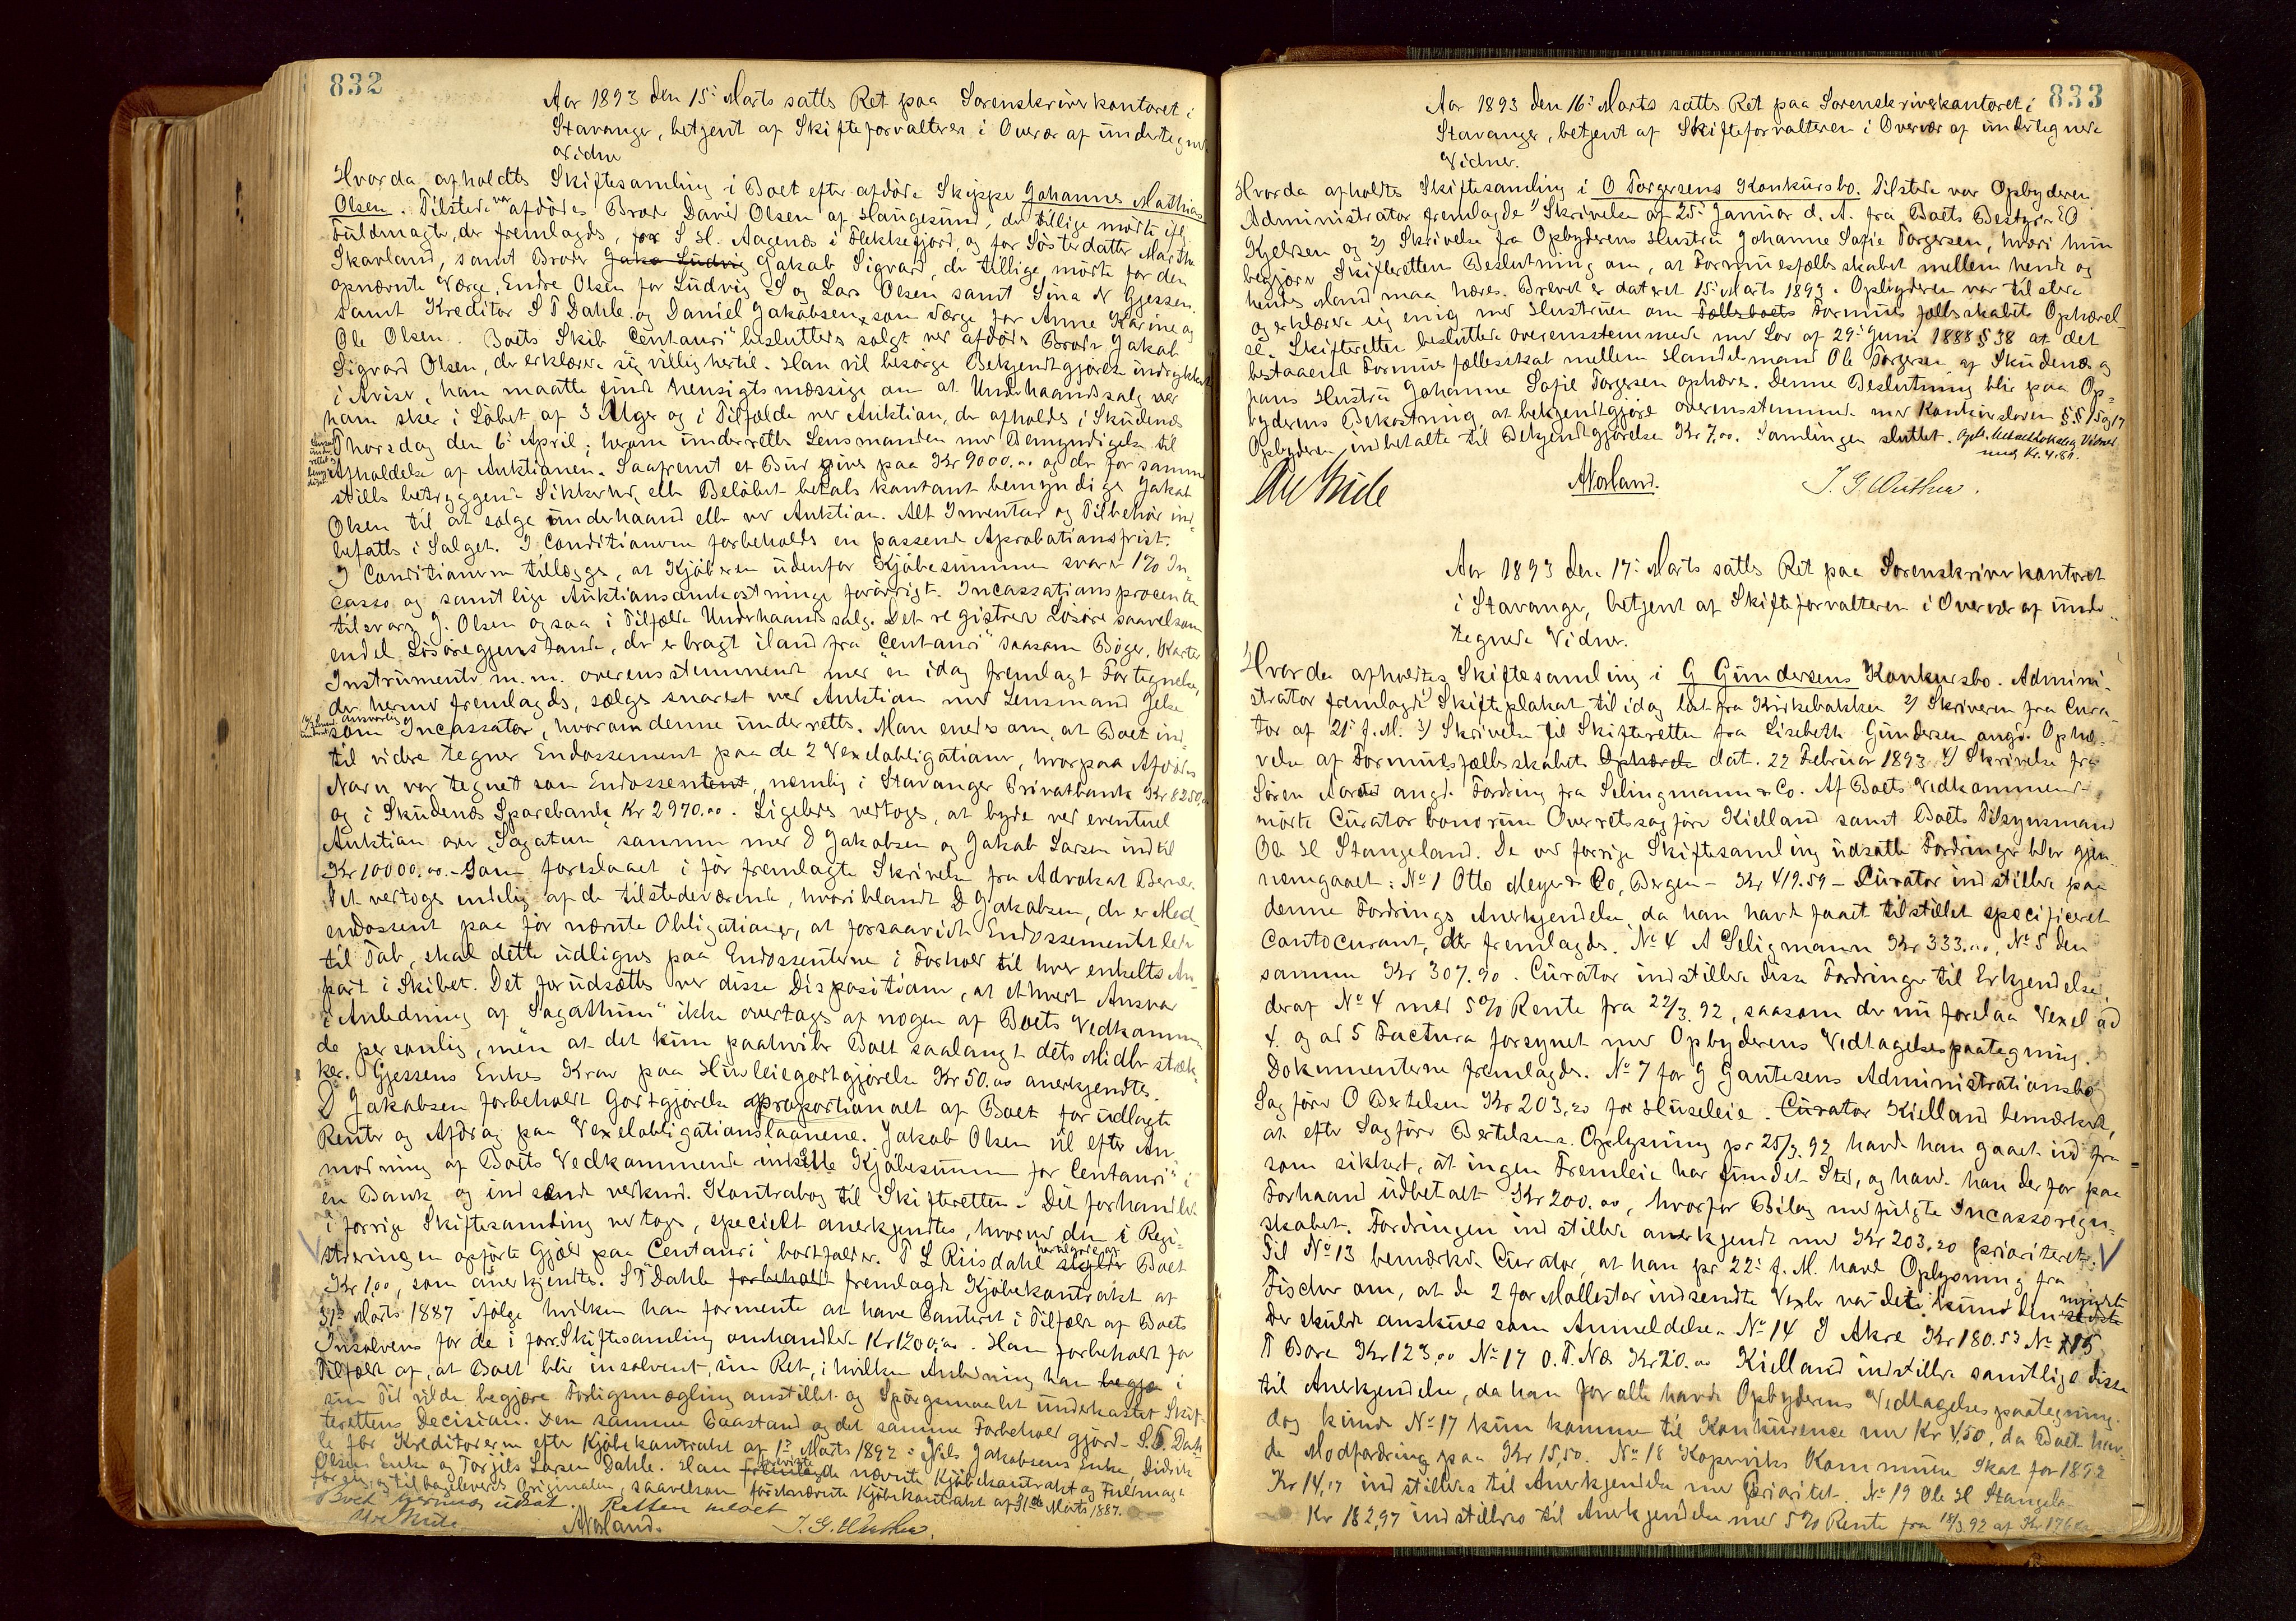 832
Aar 1893 den 15de Marts sattes Ret paa Sorenskriverkontoret i
Stavanger, betjent af Skifteforvalteren i Overvær af undertegnede
Vidner
Hvorda afholdtes Skiftesamling i Boet efter afdöde Skipper Johannes Mathias
Olsen. Tilstede var afdödes Broder David Olsen af Haugesund, der tillige mödte ifl.
Fuldmagt, der fremlagdes, for S H. Aagenæs i Flekkefjord, og for Sösterdatter Marthe
Skarland, samt Broder Jako Ludvig Jakob Sigvard, der tillige mödte for den
opnævnte Værge, Endre Olsen for Ludvig S og Lars Olsen samt Sina N Gjessen
samt Kreditor S T Dahle og Daniel Jakobsen, som Værge for Anne Karine og
Ole Olsen. Boets Skib "Centauri" besluttedes solgt ved afdödes Broder Jakob
Sigvard Olsen, der erklærede sig villig hertil. Han vil besörge Bekjendtgjörelse indrykket
i Aviser, han maatte finde hensigtsmæssige om at Underhaandssalg ved
ham sker i Löbet af 3 Uger og i Tilfælde ved Auktion, der afholdes i Skudenæs
Thorsdag den 6te April; herom underrettes Lensmanden med Bemyndigelse til
Afholdelse af Auktionen. Saafremt et Bud gives paa Kr 9000.00 og der for samme
stilles betryggende Sikkerhed, eller Belöbet betales kontant bemyndiges Jakob
Olsen til at sælge underhaand eller ved Auktion. Alt Inventar og Tilbehör ind-
befattes i Salget. I Conditionerne forbeholdes en passende Aprobationsfrist.
I Conditionerne tillægges, at Kjöberen udenfor Kjöbesummen svarer 1% In-
casso og samtlige Auktionsomkostninger forövrigt. Incassationsprocenten
tilsvarer J. Olsen ogsaa i Tilfælde Underhaandssalg. Det registrerede Lösöre saavelsom
endel Lösöregjenstande, der er bragt iland fra "Centauri" saasom Böger, Karter
Instrumenter m.m. overensstemmende med en idag fremlagt Fortegnelse,
der herved fremlagdes, sælges snarest ved Auktion med Lensmand Jelse
som ansvarlig Incassator, hvorom denne underrettes. Man enedes om, at Boet ind-
til videre tegner Endossement paa de 2 Vexelobligationer, hvorpaa Afdödes
Navn var tegnet som Endossent, nemlig i Stavanger Privatbank Kr 8250,00
og i Skudenæs Sparebank Kr 2970.00. Ligeledes vedtoges, at byde ved eventuel
Auktion over "Sagatun" sammen med D Jakobsen og Jakob Larsen indtil
Kr 10000.00. Som foreslaaet i för fremlagte Skrivelse fra Advokat Berner.
Det vedtoges endelig af de tilstedeværende, hvoriblandt D Jakobsen, der er Med-
endossent paa för nævnte Obligationer, at forsaavidt Endossementet leder
til Tab, skal dette udlignes paa Endossenterne i Forhold til hver enkelts An-
part i Skibet. Det forudsættes ved disse Dispositioner, at ethvert Ansvar
i Anledning af "Sagathun" ikke overtages af nogen af Boets Vedkommen-
de personlig, men at det kun paahviler Boet saalangt dets Midler stræk-
ker. Gjessens Enkes Krav paa Husleiegodtgjörelse Kr 50.00 anerkjendtes.
D Jakobsen forbeholdt Godtgjörelse proportionalt af Boet for udlagte
Renter og Afdrag paa Vexelobligationslaanene. Jakob Olsen vil efter An-
modning af Boets Vedkommende indsætte Kjöbesummen for "Centauri" i
en Bank og indsende vedkmd. Kontrabog til Skifteretten. Det forhandlede
i forrige Skiftesamling vedtoges, specielt anerkjendtes, hvorved den i Regi-
streringen opförte Gjæld paa "Centauri" bortfalder. T L Riisdahl skylder Boet
Kr 1,00, som anerkjendtes. S T Dahle forbeholdt fremlagde Kjöbekontrakt af
31te Marts 1887 ifölge hvilken han formente at have Panteret i Tilfælde af Boets
Insolvens for de i forr. Skiftesamling omhandlede Kr 1200,00. Han forbeholdt for
Tilfældet af, at Boet blir insolvent, sin Ret, i hvilken Anledning han begjæ i
sin Tid vilde begjære Forligsmægling anstillet og Spörgsmaalet underkastet Skif-
terettens Decision. Den samme Paastand og det samme Forbehold gjorde S. T. Dah-
le for Kreditorerne efter Kjöbekontrakt af 1ste Marts 1892: Nils Jakobsens Enke, Didrik
Olsens Enke og Torjels Larsen Dahle. Han fremlagde nævnte Kjöbekontrakt og Fuldmagt
for sig og tilbageleverede Originalen, saavelsom förstnævnte Kjöbekontrakt af 31te Marts 1887.
Boet udsat. Retten hævet
Norland.
833
Aar 1893 den 16de Marts sattes Ret paa Sorenskriverkontoret i
Stavanger, betjent af Skifteforvalteren i Overvær af undertegnede
Vidner.
Hvorda afholdtes Skiftesamling i O Torgersens Konkursbo. Tilstede var Opbyderen
Administrator fremlagde 1) Skrivelse af 25de Januar d. A. fra Boets Bestyrer O
Kjelsen og 2) Skrivelse fra Opbyderens Hustru Johanne Sofie Torgersen, hvori hun
begjærer Skifterettens Beslutning om, at Formuesfællesskabet mellem hende og
hendes Mand maa hæves. Brevet er dateret 15de Marts 1893. Opbyderen var tilstede
og erklærede sig enig med Hustruen om Fællesboets Formues fællesskabets Ophævel-
se. Skifteretten besluttede overensstemmende med Lov af 29de Juni 1888 § 38 at det
bestaaende Formuesfællesskab mellem Handelsmand Ole Torgersen af Skudenæs og
hans Hustru Johanne Sofie Torgersen ophæves. Denne Beslutning blir paa Op-
byderens Bekostning at bekjendtgjöre overensstemmende med Konkursloven §§ 15 og 17
Opbyderen indbetalte til Bekjendtgjörelse Kr 7,00. Samlingen sluttet.
Norland.
Aar 1893 den 17de Marts sattes Ret paa Sorenskriverkontoret
i Stavanger, betjent af Skifteforvalteren i Overvær af under-
tegnede Vidner.
Hvorda afholdtes Skiftesamling i G Gundersens Konkursbo. Admini-
strator fremlagde 1) Skifteplakat til idag læst fra Kirkebakken 2) Skriveren fra Cura-
tor af 21de f. M. 3) Skrivelse til Skifteretten fra Lisebeth Gundersen angd. Ophæ-
velse af Formuesfællesskabet Ophævele dat. 22 Februar 1893 4) Skrivelse fra
Sören angd. Fordring fra Selingmann & Co. Af Boets Vedkommende
mödte Curator bonorum Overretssagförer Kielland samt Boets Tilsynsmand
Ole H Stangeland. De ved forrige Skiftesamling udsatte Fordringer blev gjen-
nemgaaet: No 1 Otto Meyer & Co, Bergen - Kr 419.59 - Curator indstillede paa
denne Fordrings Anerkjendelse, da han havde faaet tilstillet specificeret
Contocurant, der fremlagdes. No 4 A Seligmann Kr 333.00, No 5 den
samme Kr 307.90. Curator indstillede disse Fordringer til Erkjendelse,
deraf No 4 med 5% Rente fra 22/3. 92, saasom der nu forelaa Vexel ad
4. og ad 5 Factura forsynet med Opbyderens Vedtagelsespaategning.
Dokumenterne fremlagdes. No 7 for G Gautesens Administrationsbo
Sagförer O Bertelsen Kr 203,20 for Husleie. Curator Kielland bemærket,
at efter Sagförer Bertelsens Oplysning pr 25/3. 92 havde han gaaet ud fra
som sikkert, at ingen Fremleie har fundet Sted, og havde han derfor paa
Forhaand udbetalt Kr 200.00, hvorfor Bilag medfulgte Incassoregn-
skabet. Fordringen indstillede anerkjendt med Kr 203,20 prioriteret.
Til No 13 bemærkede Curator, at han pr 22de f. M. havde Oplysning fra
Fischer om, at de 2 for Mollestar indsendte Vexler var det kun den mindste
der skulde anskues som Anmeldelse. No 14 J Akre Kr 180.53 No 15
T Bore Kr 123,00 No 17 O. T. Næs Kr 20.00 Kielland indstillede samtlige disse
til Anerkjendelse, da han for alle havde Opbyderens Vedtagelsespaategning.
dog kunde No 17 kun komme til Konkurence med Kr 4,50, da Boet hav-
de Modfordring paa Kr 15,50. No 18 Koperviks Kommune Skat for 1892
Kr 14,17 indstilledes til Anerkjendelse med Prioritet. No 19 Ole H Stangela-
Kr 182,97 indstilledes til Anerkjendelse med 5% Rente fra 18/3.92 af Kr. 176